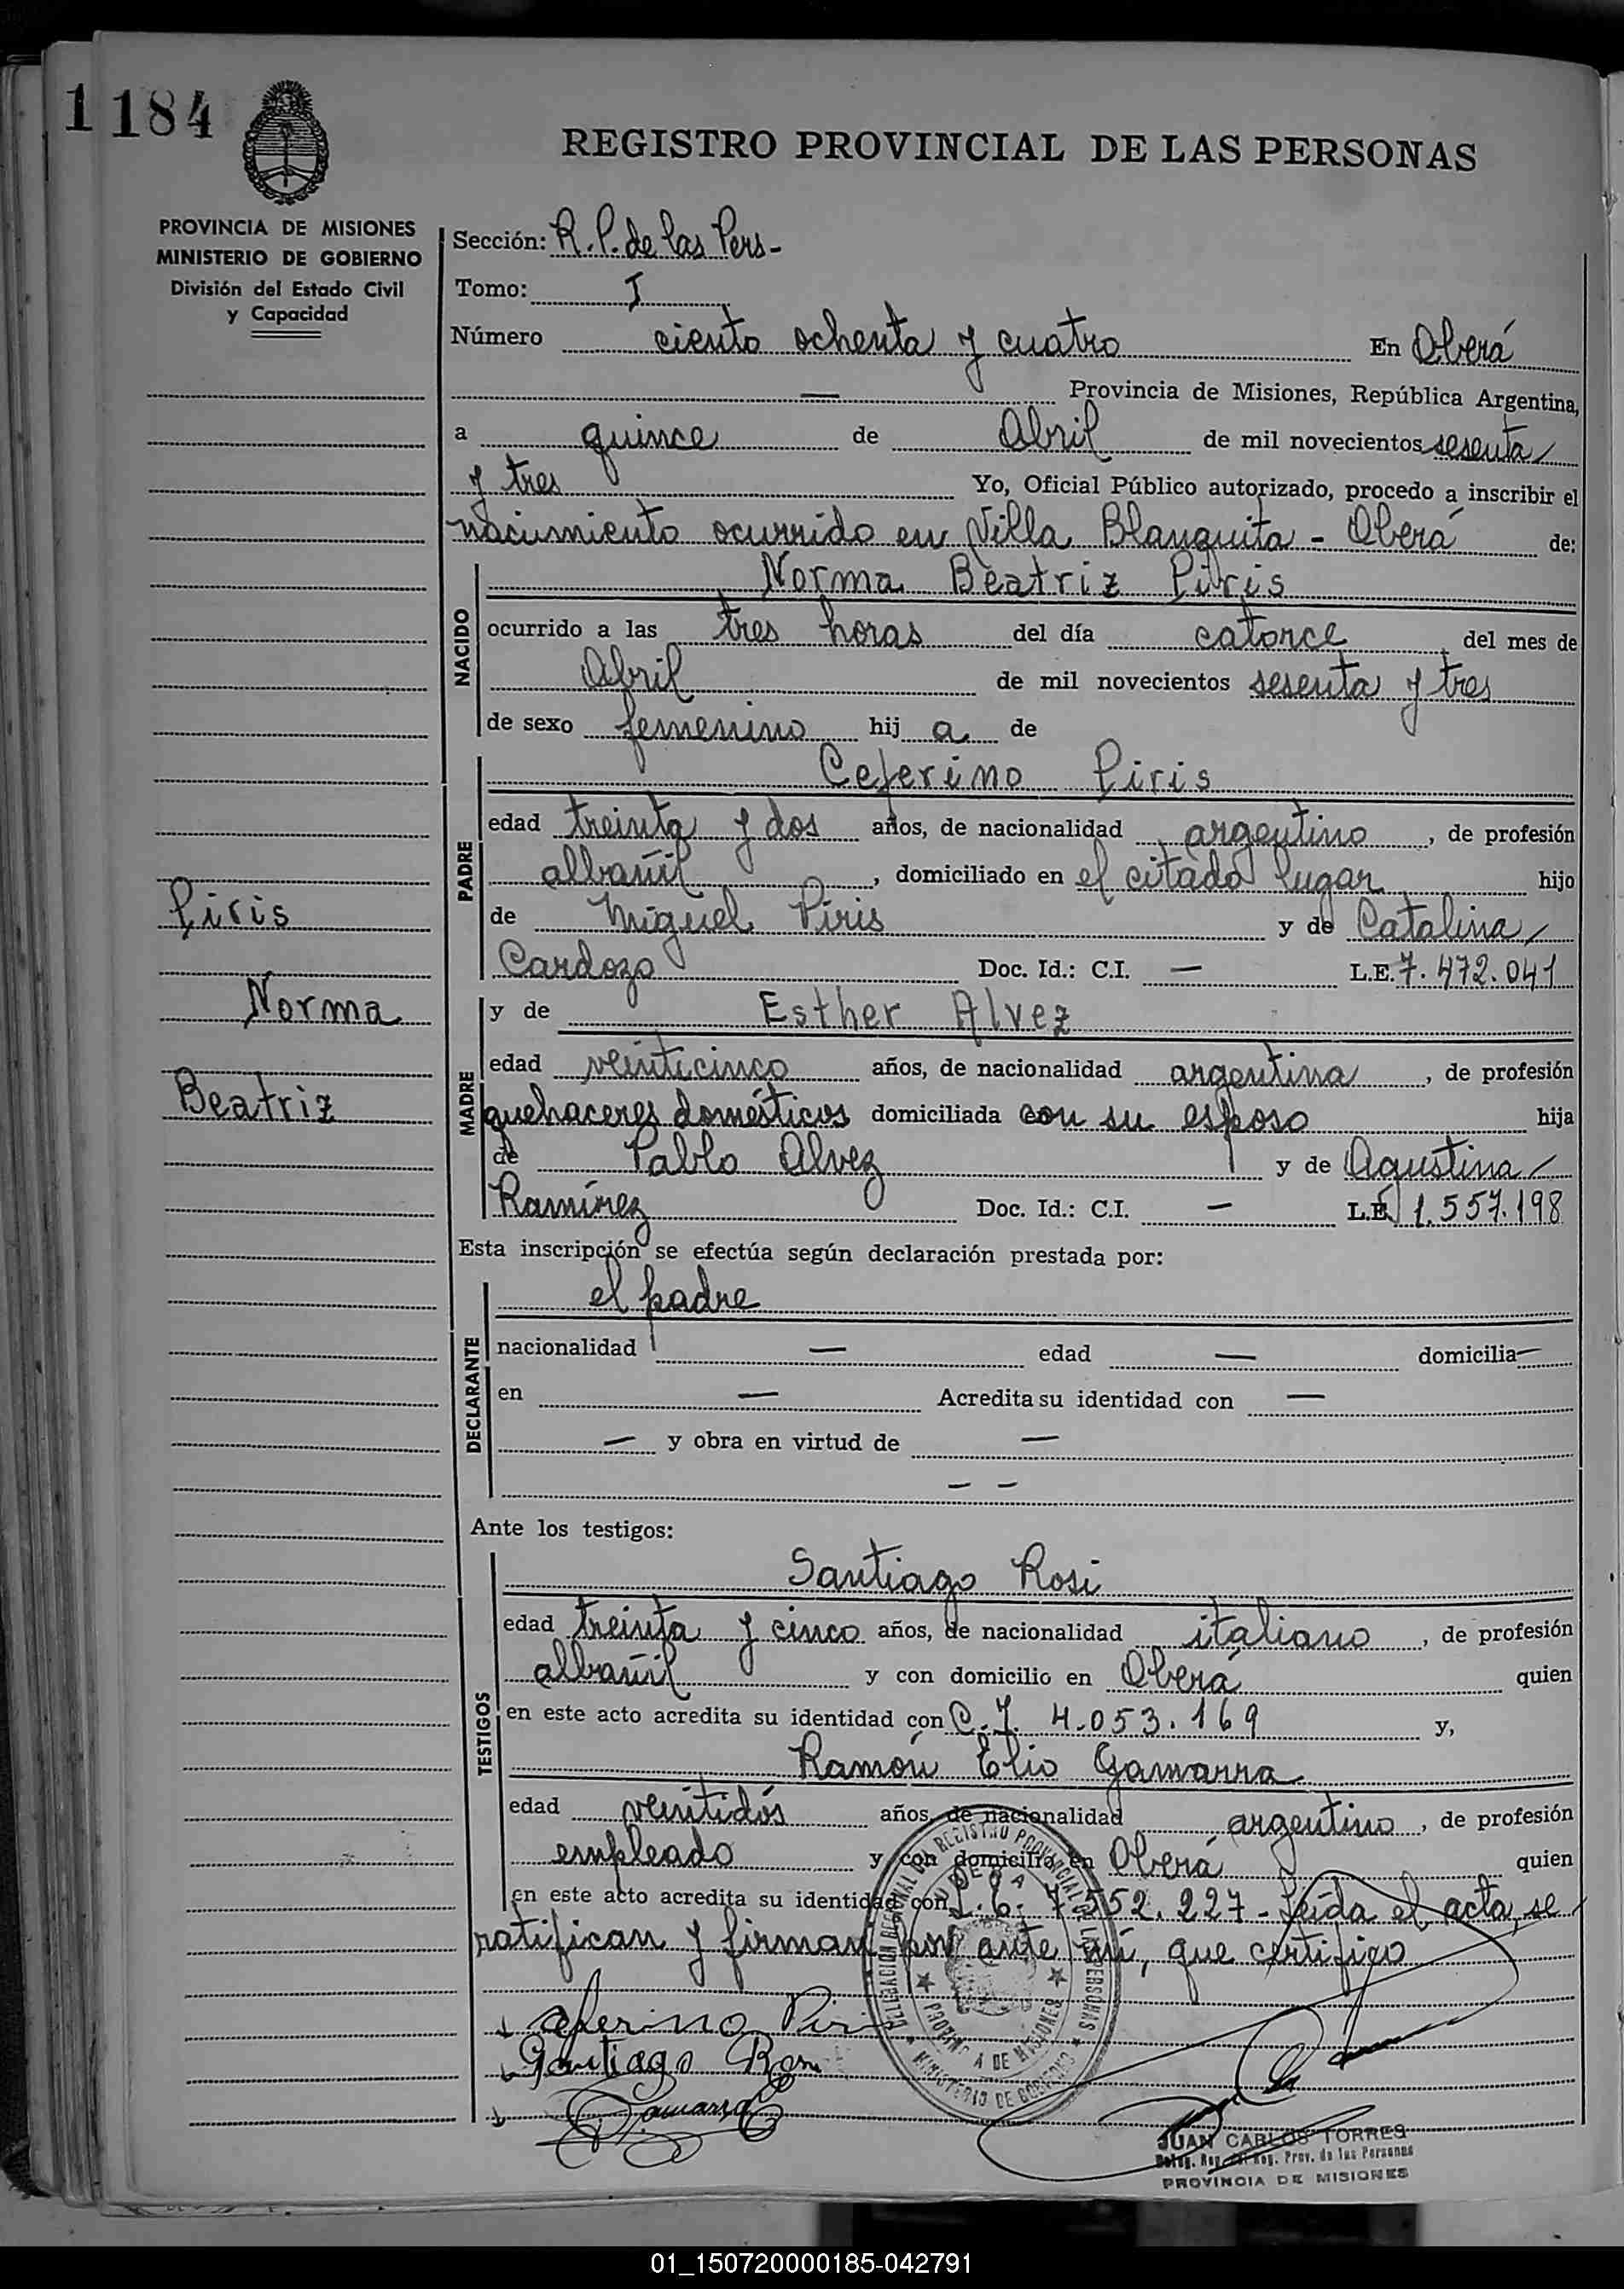 1 184
REGISTRO PROVINCIAL DE LAS PERSONAS
PROVINCIA DE MISIONES
MINISTERIO DE GOBIERNO
División del Estado Civil
y Capacidad
Sección: R.P. de las Pers-
Tomo: I
Número ciento ochenta y cuatro En Oberá
— Provincia de Misiones, República Argentina,
a quince de Abril de mil novecientos sesenta
y tres Yo, Oficial Público autorizado, procedo a inscribir el
nacimiento ocurrido en Villa Blanquita - Oberá de:
NACIDO
Norma Beatriz Piris
ocurrido a las tres horas del día catorce del mes de
Abril de mil novecientos sesenta y tres
de sexo femenino hij a de
PADRE
Ceferino Piris
edad treinta y dos años, de nacionalidad argentino, de profesión
albañil, domiciliado en el citado lugar hijo
de Miguel Piris y de Catalina
Cardozo Doc. Id.: C.I. — L.E. 7.472.041
Piris
Norma
Beatriz
MADRE
y de Esther Alvez
edad veinticinco años, de nacionalidad argentina, de profesión
quehaceres domésticos domiciliada con su esposo hija
de Pablo Alvez y de Agustina
Ramírez Doc. Id.: C.I. — L.E. 1.557.198
Esta inscripción se efectúa según declaración prestada por:
DECLARANTE
el padre
nacionalidad — edad — domicilia—
en — Acredita su identidad con —
— y obra en virtud de —
— —
Ante los testigos:
TESTIGOS
Santiago Rosi
edad treinta y cinco años, de nacionalidad italiano, de profesión
albañil y con domicilio en Oberá quien
en este acto acredita su identidad con C.I. 4.053.169 y,
Ramón Elio Gamarra
edad veintidós años, de nacionalidad argentino, de profesión
empleado y con domicilio en Oberá quien
en este acto acredita su identidad con L.E. 7.552.227 - Leída el acta, se
ratifican y firman por ante mí, que certifico
Ceferino Piris
Santiago Rosi
Gamarra
DELEGACION REGIONAL DEL REGISTRO PROVINCIAL DE LAS PERSONAS
OBERA
PROVINCIA DE MISIONES
MINISTERIO DE GOBIERNO
JUAN CARLOS TORRES
Deleg. Reg. del Reg. Prov. de las Personas
PROVINCIA DE MISIONES
01_150720000185-042791